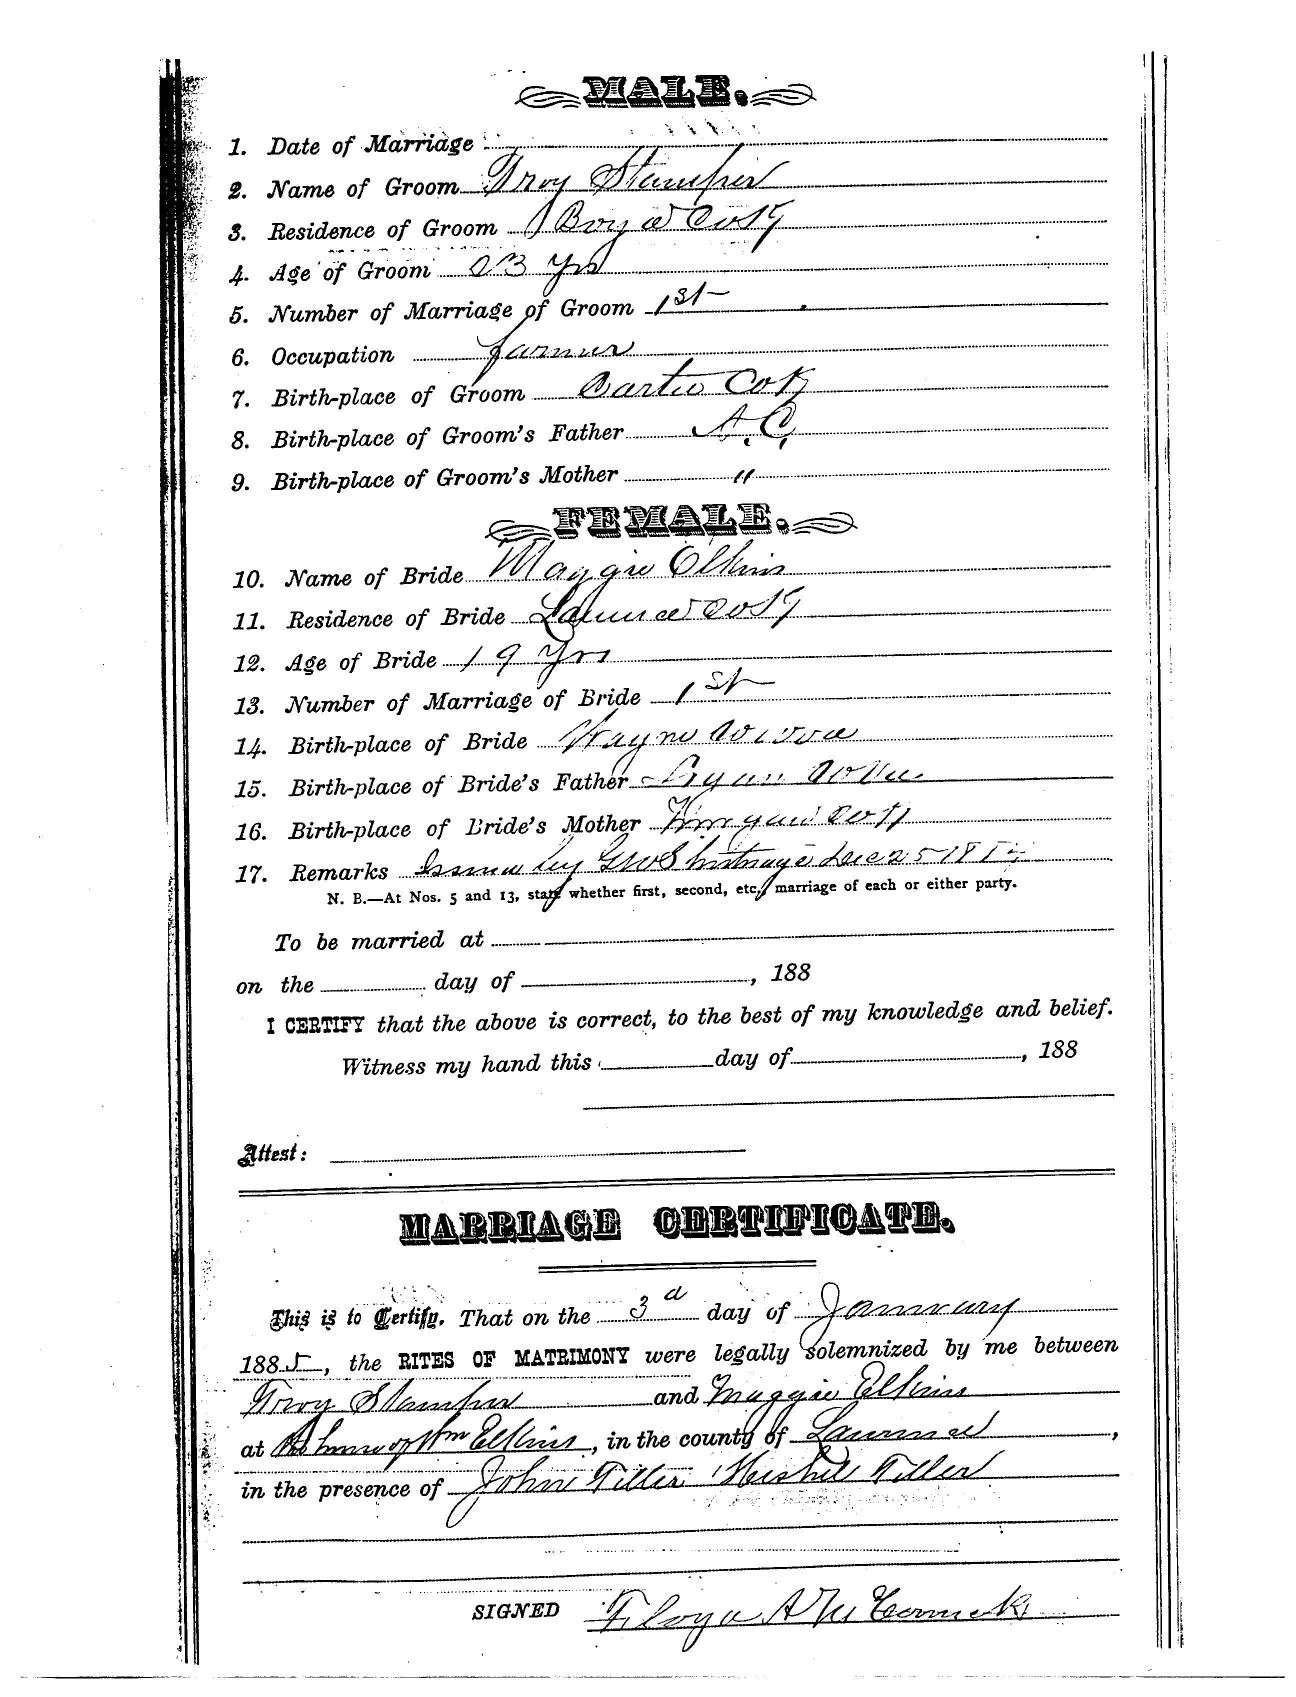 MALE.
1. Date of Marriage
2. Name of Groom Troy Stamper
3. Residence of Groom Boyd Co Ky
4. Age of Groom 23 Yrs
5. Number of Marriage of Groom 1st
6. Occupation farmer
7. Birth-place of Groom Carter Co K
8. Birth-place of Groom's Father N.C.
9. Birth-place of Groom's Mother "
FEMALE.
10. Name of Bride Maggie Elkins
11. Residence of Bride Lawrence Co Ky
12. Age of Bride 19 Yrs
13. Number of Marriage of Bride 1st
14. Birth-place of Bride Wayne Co
15. Birth-place of Bride's Father
16. Birth-place of Bride's Mother
17. Remarks Issued by Dec 25 1884
N. B.—At Nos. 5 and 13, state whether first, second, etc., marriage of each or either party.
To be married at
on the day of , 188
I CERTIFY that the above is correct, to the best of my knowledge and belief.
Witness my hand this day of , 188
Attest:
MARRIAGE CERTIFICATE.
This is to Certify, That on the 3d day of January
1885, the RITES OF MATRIMONY were legally solemnized by me between
Troy Stamper and Maggie Elkins
at house of Wm Elkins, in the county of Lawrence,
in the presence of John Tiller Tiller
SIGNED A McCormick